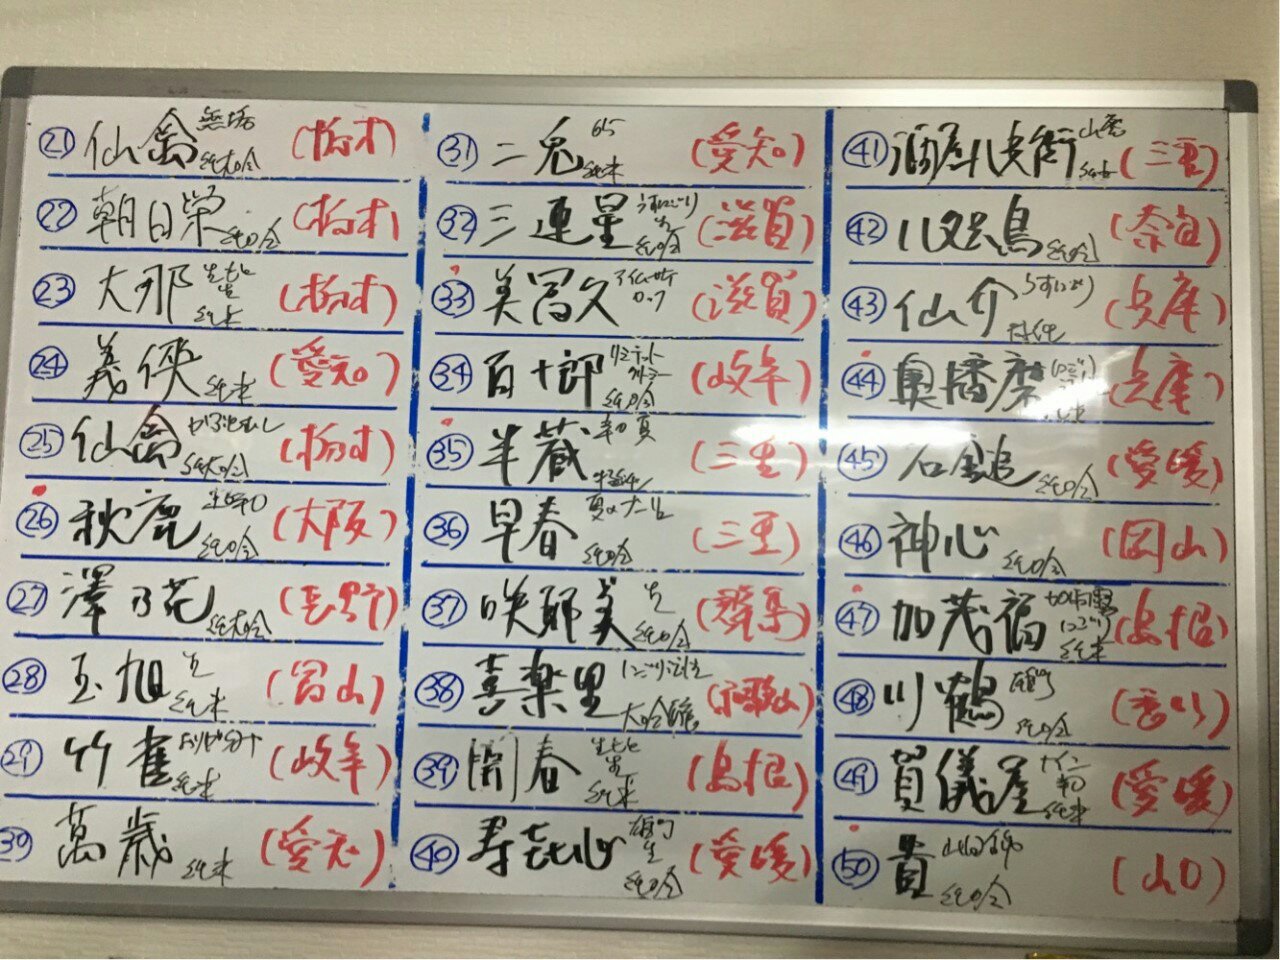 ㉑ 仙禽 無垢 純大吟 (栃木)
㉒ 朝日栄 純吟 (栃木)
㉓ 大那 生もと 純米 (栃木)
㉔ 義侠 純米 (愛知)
㉕ 仙禽 かぶとむし 純大吟 (栃木)
㉖ 秋鹿 純吟 (大阪)
㉗ 澤乃花 純大吟 (長野)
㉘ 玉旭 純米 (富山)
㉙ 竹雀 純米 (岐阜)
㉚ 萬歳 純米 (愛知)
㉛ 二兎 65 純米 (愛知)
㉜ 三連星 うすにごり 生 純吟 (滋賀)
㉝ 美冨久 0.7 (滋賀)
㉞ 百十郎 純吟 (岐阜)
㉟ 半蔵 (三重)
㊱ 早春 純吟 (三重)
㊲ 咲耶美 生 純吟 (群馬)
㊳ 喜楽里 にごり 大吟醸 (和歌山)
㊴ 開春 生もと 純米 (島根)
㊵ 寿喜心 雄町 生 純吟 (愛媛)
㊶ 酒屋八兵衛 山廃 純米 (三重)
㊷ 八咫烏 純吟 (奈良)
㊸ 仙介 うすにごり 特純 (兵庫)
㊹ 奥播磨 純米 (兵庫)
㊺ 石鎚 純吟 (愛媛)
㊻ 神心 純吟 (岡山)
㊼ 加茂福 にごり 純米 (島根)
㊽ 川鶴 雄町 純吟 (香川)
㊾ 賀儀屋 純米 (愛媛)
㊿ 貴 純吟 (山口)